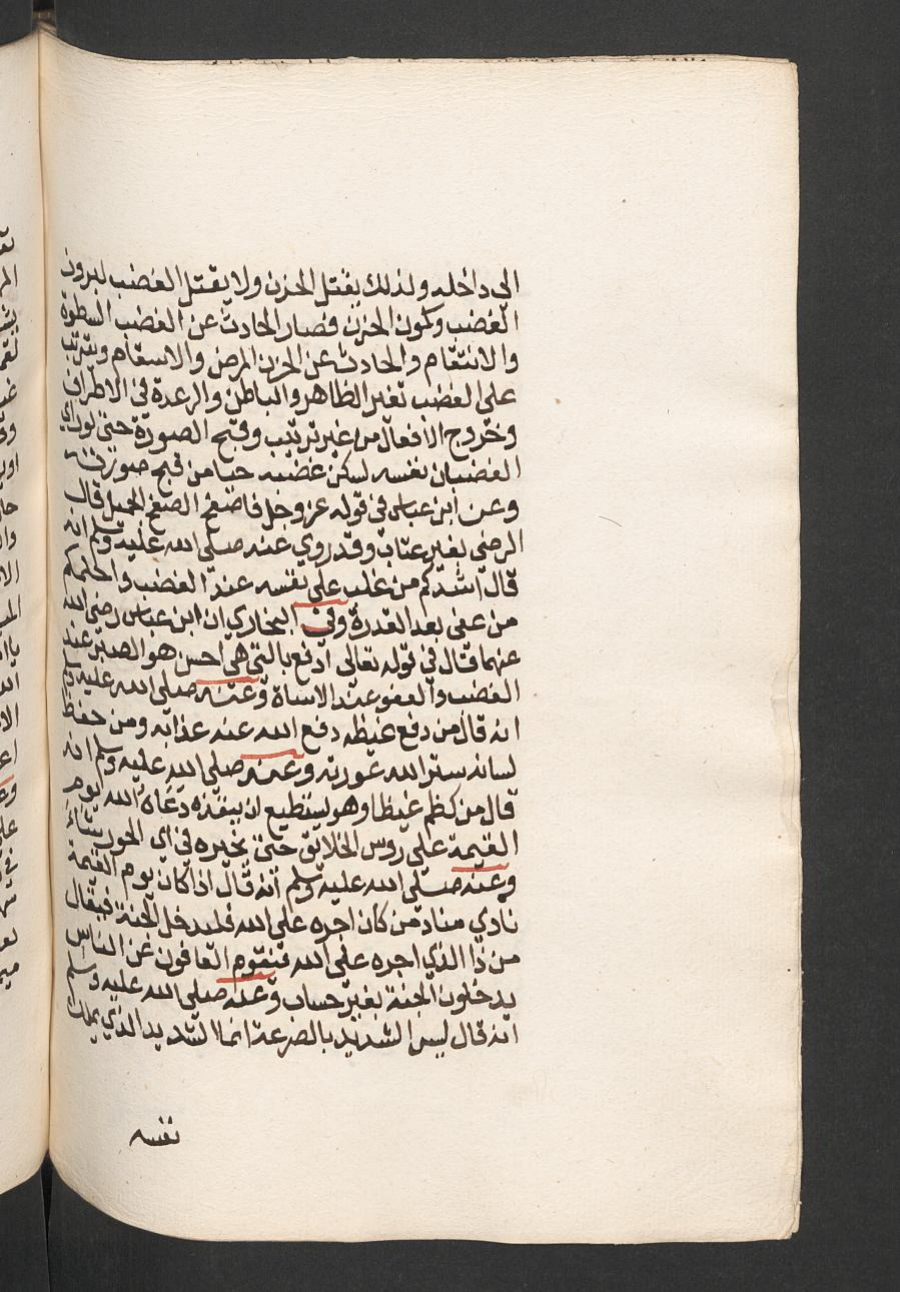 الى داخله ولذلك يقتل الحزن ولا يقتل الغضب لبروز
الغضب وكمون الحزن فصار الحادث عن الغضب السطوة
والانتقام والحادث عن الحزن المرض والاسقام ويترتب
على الغضب تغير الظاهر والباطن والرعدة في الاطراف
وخروج الافعال من غير ترتيب وقبح الصورة حتى لو راى
الغضبان نفسه لسكن غضبه حيا من قبح صورته
وعن ابن عباس في قوله عز وجل فاصفح الصفح الجميل قال
الرضى بغير عتاب وقد روي عنه صلى الله عليه وسلم انه
قال اشدكم من غلب على نفسه عند الغضب واحلمكم
من عفى بعد القدرة وفي البخاري ان ابن عباس رضي الله
عنهما قال في قوله تعالى ادفع بالتي هي احسن هو الصبر عند
الغضب والعفو عند الاساة وعنه صلى الله عليه وسلم
انه قال من دفع غيظه دفع الله عنه عذابه ومن حفظ
لسانه ستر الله عورته وعنه صلى الله عليه وسلم انه
قال من كظم غيظا وهو يستطيع ان ينفذه دعاه الله يوم
القيمة على روس الخلائق حتى يخيره في اي الحور يشاء
وعنه صلى الله عليه وسلم انه قال اذا كان يوم القيمة
نادي مناد من كان اجره على الله فليدخل الجنة فيقال
من ذا الذي اجره على الله فيقوم العافون عن الناس
يدخلون الجنة بغير حساب وعنه صلى الله عليه وسلم
انه قال ليس الشديد بالصرعة انما الشديد الذي يملك
نفسه